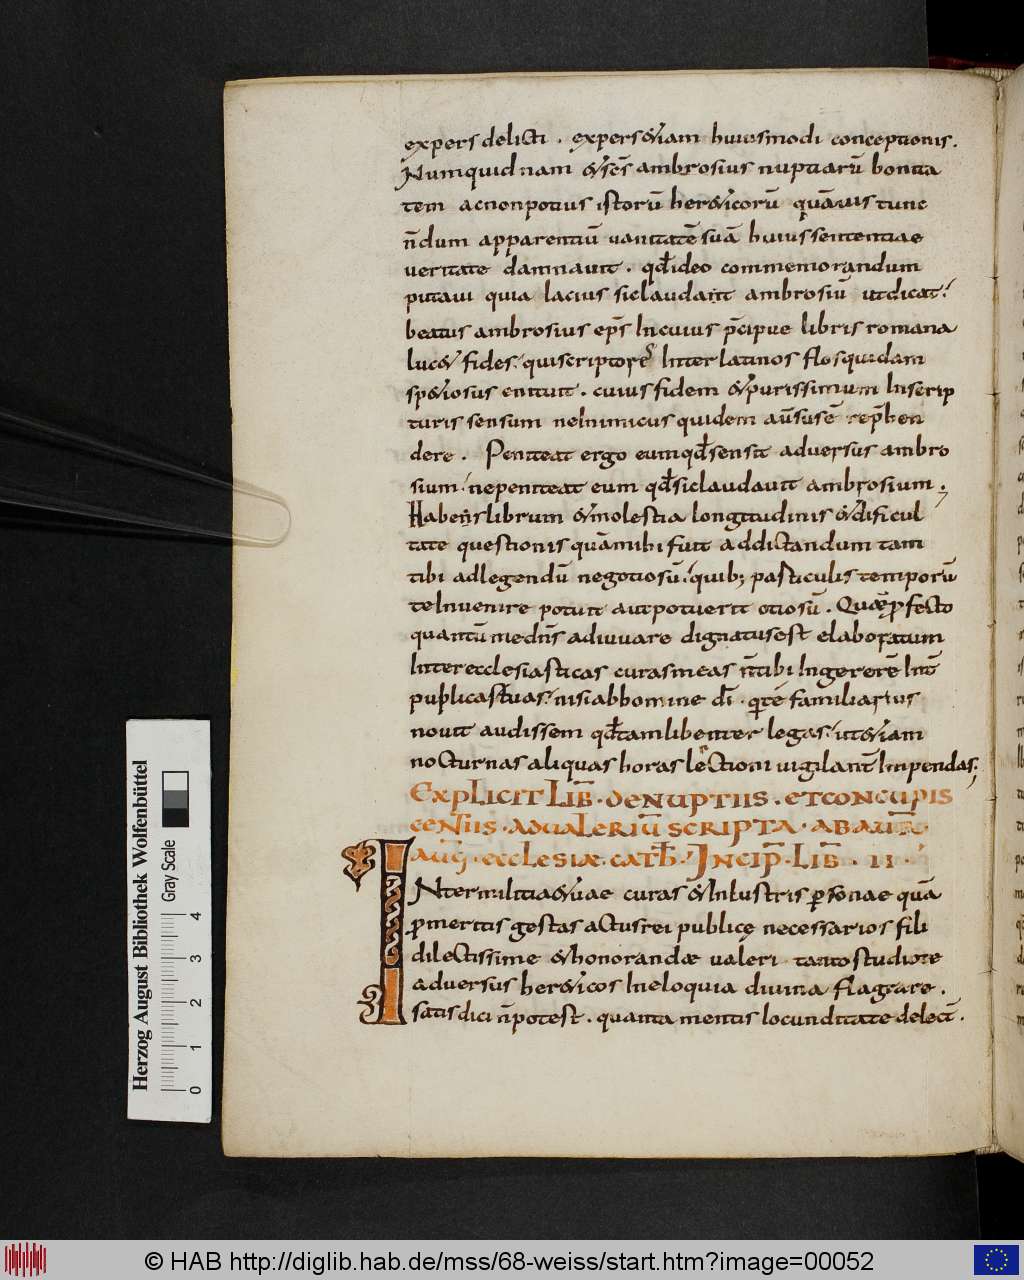 expers delicti . expers & iam huiusmodi conceptionis .
Numquid nam & scs ambrosius nuptiarū bonita
tem ac non potius istorū her&icorū quāuis tunc
n̄dum apparentiū vanitatē suā huius sententiae
veritate damnauit . qđ ideo commemorandum
putaui quia lacius sic laudauit ambrosiū ut dicat
beatus ambrosius ep̄s In cuius p̄cipue libris romana
luc& fides qui scriptores Inter latinos flos quidam
sp&iosus enituit . cuius fidem & purissimum In scrip
turis sensum ne Inimicus quidem aus̄us ē rep̄hen
dere . Peniteat ergo eum qđ sensit adversus ambro
sium ne peniteat eum qđ sic laudauit ambrosium .
Habens librum & molestia longitudinis & dificul
tate questionis quā mihi fuit ad dictandum tam
tibi ad legendū negotiosū quib; particulis temporū
te Inuenire potuit aut potuerit otiosū . Quē profecto
quantū me dn̄s adiuuare dignatus est elaboratum
Inter ecclesiasticas curas meas n̄ tibi Ingererē Int̄
publicas tuas nisi ab homine dī . qi te familiarius
nouit audissem qđ tam libenter legas ut & iam
nocturnas aliquas horas lectioni uigilant̄ Impendas
EXPLICIT LIB̄ · DE NUPTIIS · ET CONCUPIS
CENTIIS · AD UALERIŪ SCRIPTA · AB AUR̄
AUḠ · ECCLESIÆ · CATH̄ · INCIP̄ · LIB̄ · II ·
INter militiae tuae curas & Inlustris personae quā
p meritis gestas actus rei publicę necessarios fili
dilectissime & honorandæ ualeri tanto studio te
adversus her&icos In eloquia diuina flagrare .
satis dici n̄ potest . quanta mentis Iocunditate delect̄ .
Herzog August Bibliothek Wolfenbüttel
Gray Scale
0 1 2 3 4
© HAB http://diglib.hab.de/mss/68-weiss/start.htm?image=00052